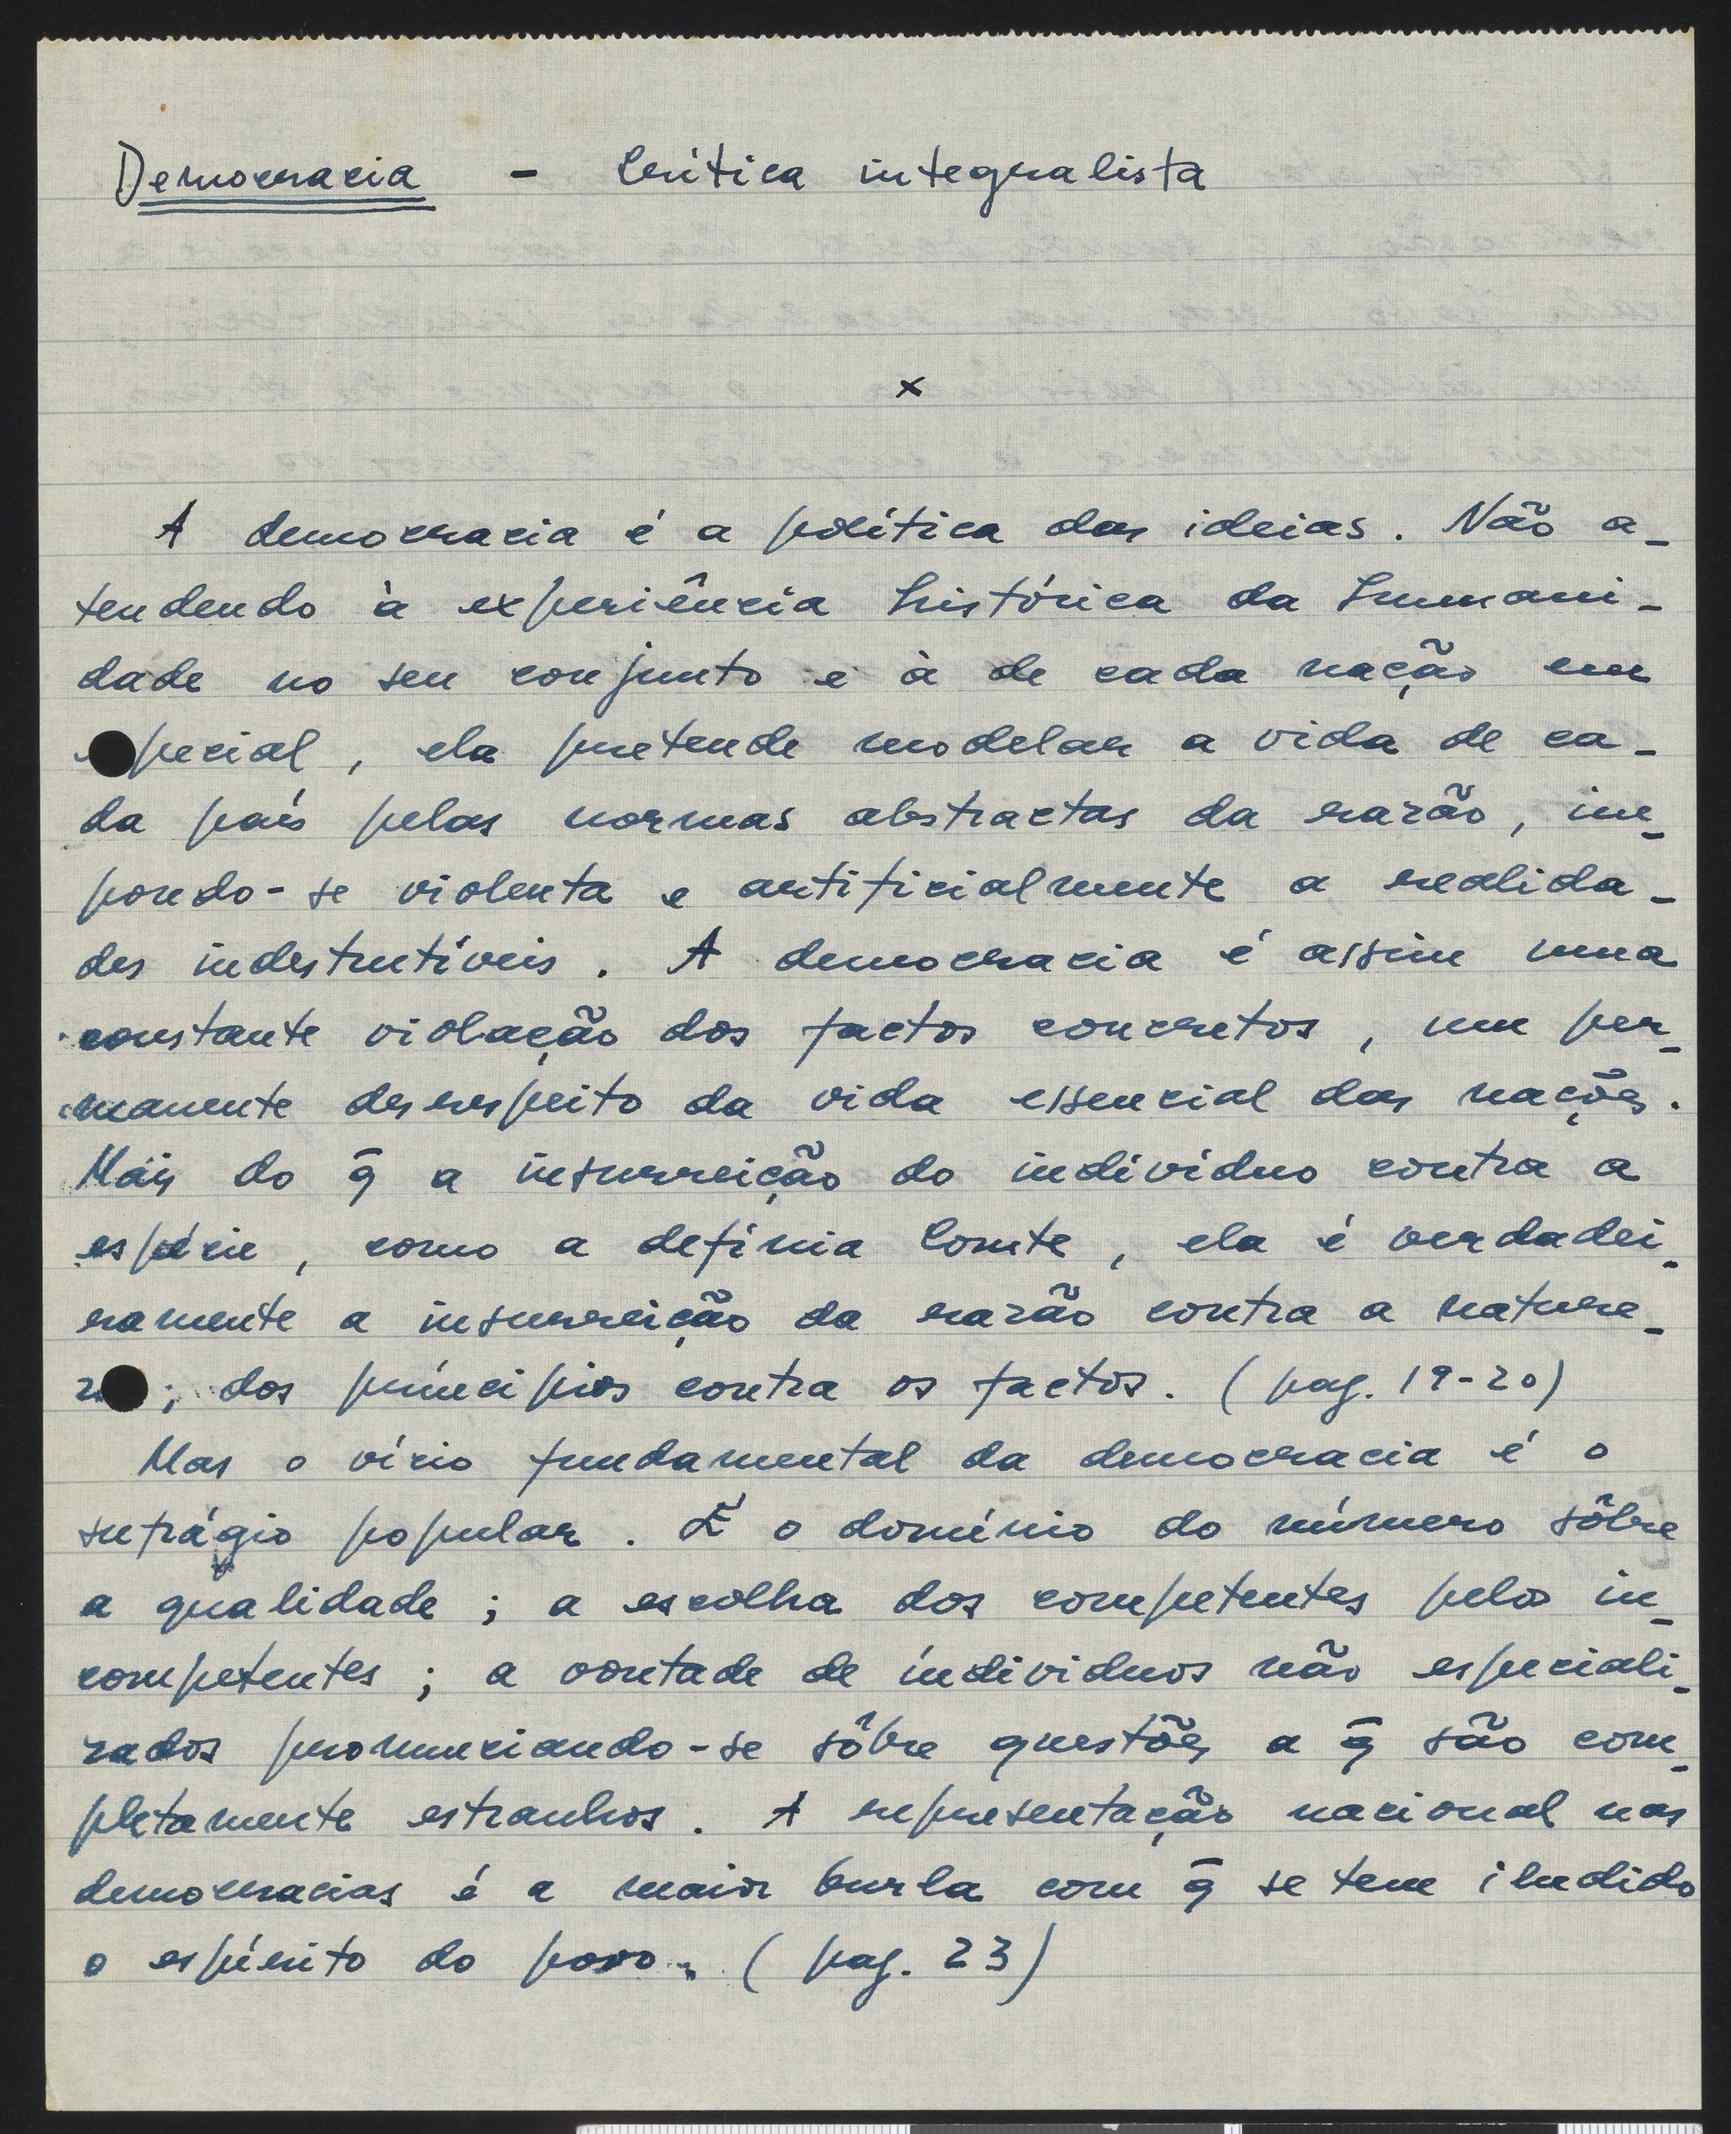 Democracia - Crítica integralista
x
A democracia é a política das ideias. Não a-
tendendo à experiência histórica da humani-
dade no seu conjunto e à de cada nação em
especial, ela pretende modelar a vida de ca-
da país pelas normas abstractas da razão, im-
pondo-se violenta e artificialmente a realida-
des indestrutíveis. A democracia é assim uma
constante violação dos factos concretos, um per-
manente desrespeito da vida essencial das nações.
Mais do q̄ a insurreição do indivíduo contra a
espécie, como a definia Comte, ela é verdadei-
ramente a insurreição da razão contra a nature-
za; dos princípios contra os factos. (pag. 19-20)
Mas o vício fundamental da democracia é o
sufrágio popular. É o domínio do número sôbre
a qualidade; a escolha dos competentes pelos in-
competentes; a vontade de indivíduos não especiali-
zados pronunciando-se sôbre questões a q̄ são com-
pletamente estranhos. A representação nacional nas
democracias é a maior burla com q̄ se tem iludido
o espírito do povo. (pag. 23)